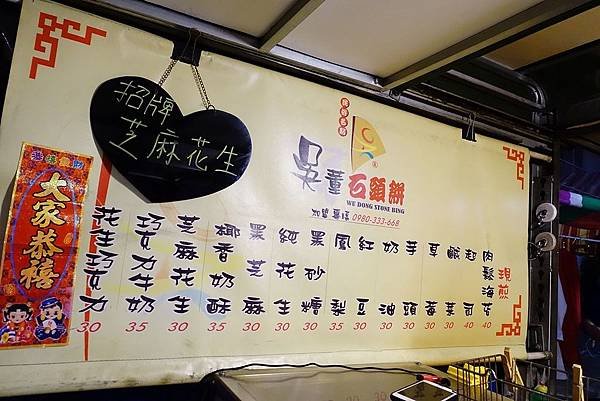 招牌
芝麻花生
吳董石頭餅
WU DONG STONE BING
加盟專線 0980-333-668
大家恭禧
花生巧克力 30
巧克力牛奶 35
芝麻花生 35
椰香奶酥 35
黑芝麻 30
純花生 30
黑砂糖 30
鳳梨 30
紅豆 30
奶油 30
芋頭 30
草莓 30
鹹菜 30
起司 35
肉鬆海苔 35
現煎